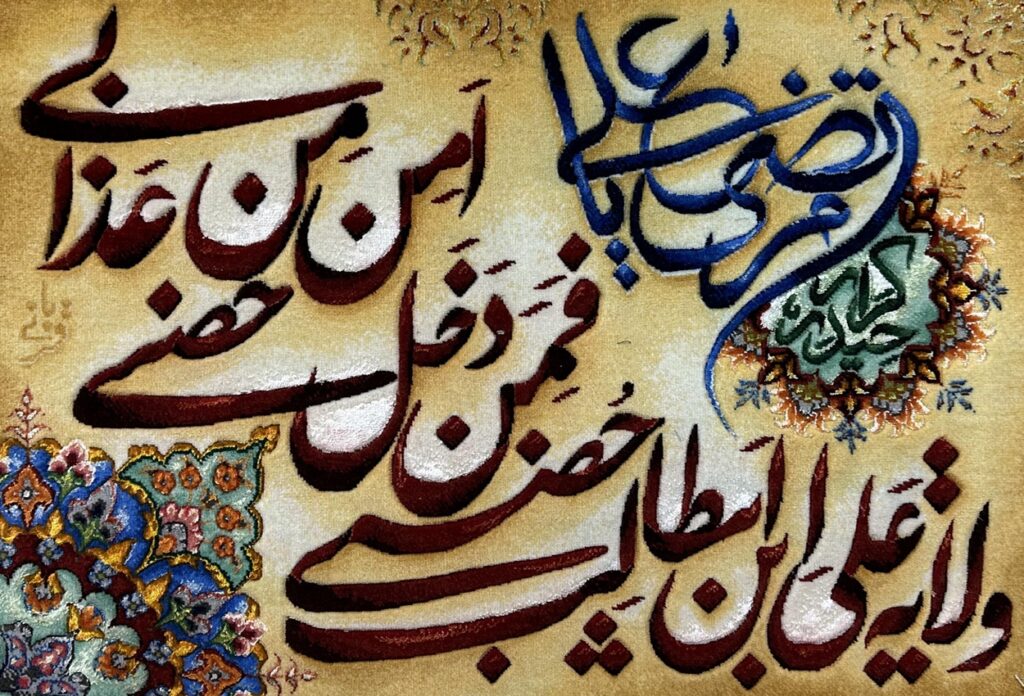 یا علی مرتضی
حیدر کرار
ولایة علی ابن ابیطالب حصنی
فمن دخل حصنی
امن من عذابی
قربانی